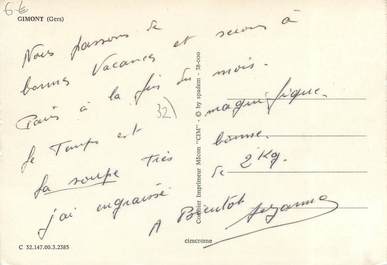 6€
GIMONT (Gers)
Nous passons de
bonnes Vacances et serons à
Paris à la fin du mois.
le Temps est magnifique.
la soupe très bonne.
j'ai engraissé de 2 Kg.
A Bientôt
Suzanne
32)
Combier Imprimeur Mâcon "CIM" - © by spadem - 38-000
C 32.147.00.3.2385
cimcrome